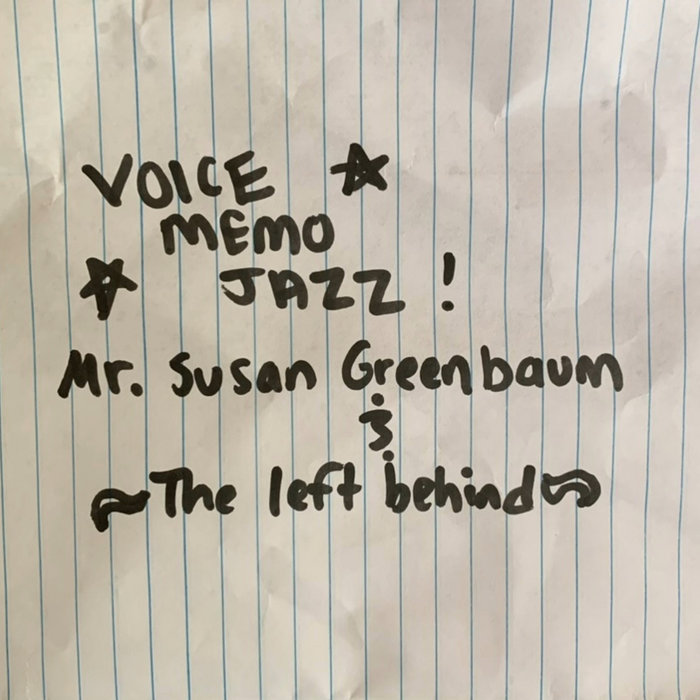 VOICE
MEMO
JAZZ !
Mr. Susan Greenbaum
&
~The left behind~